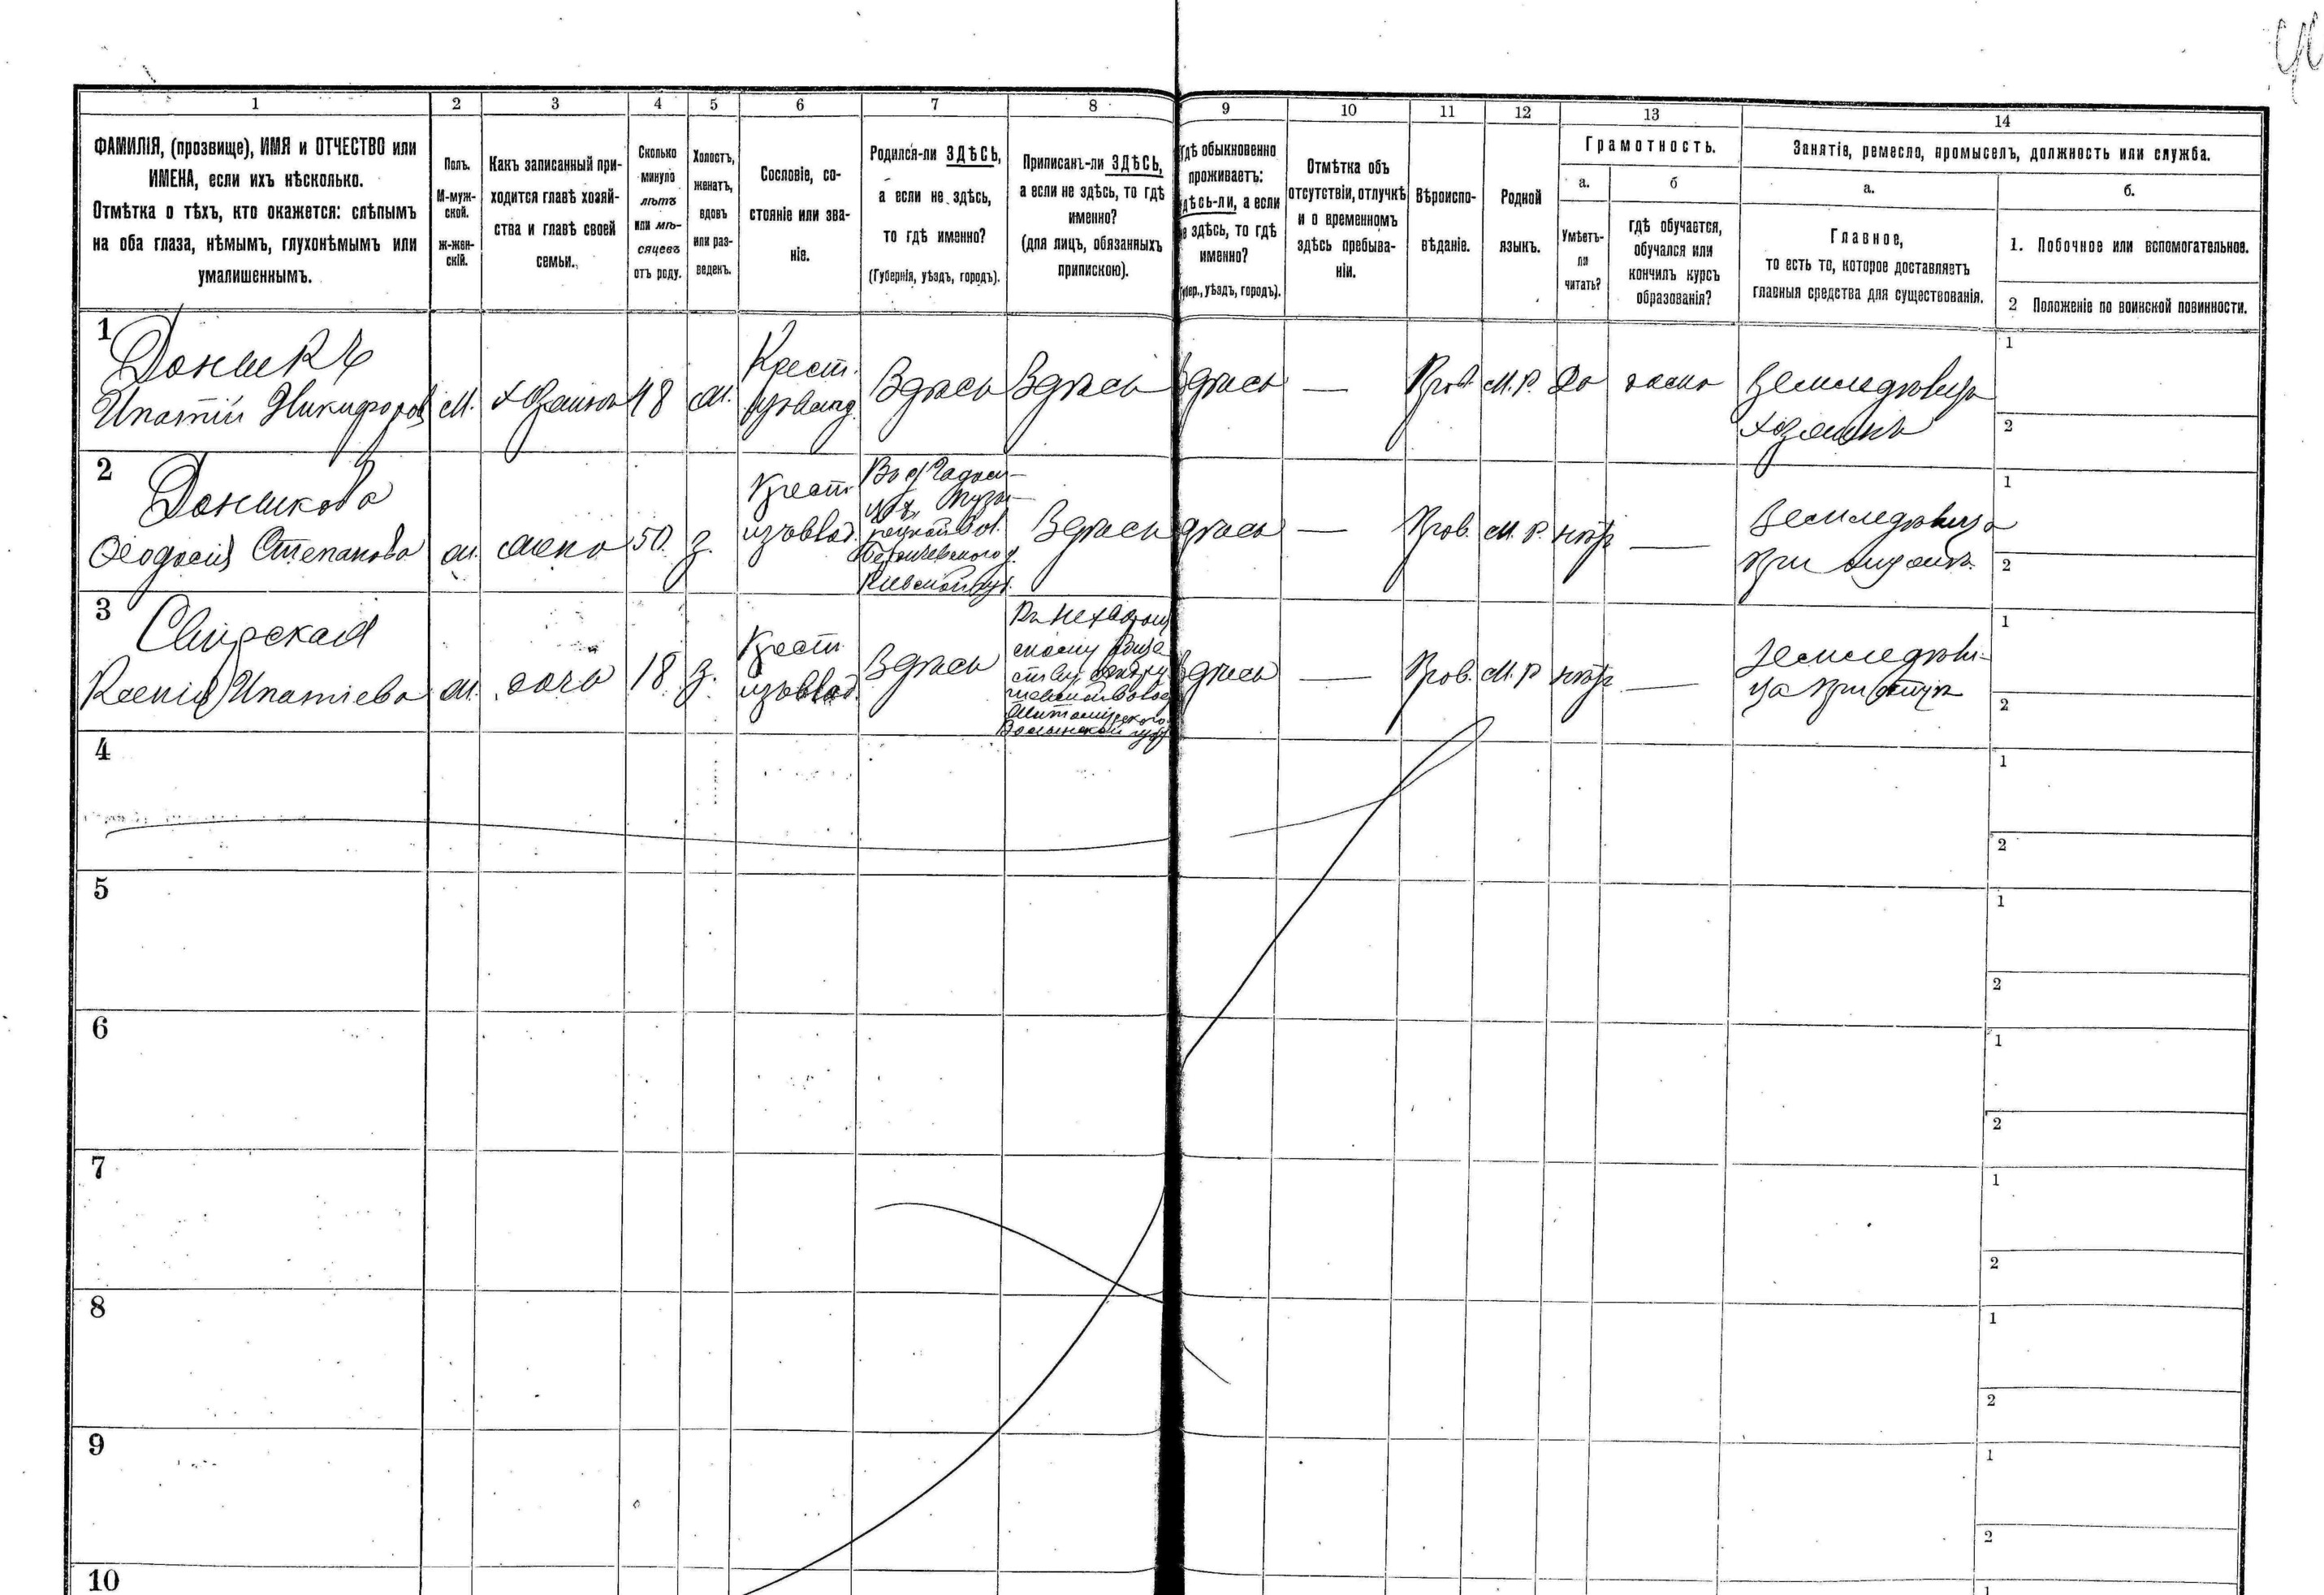 1
2
3
4
5
6
7
8
9
10
11
12
13
14
ФАМИЛІЯ, (прозвище), ИМЯ и ОТЧЕСТВО или
ИМЕНА, если ихъ нѣсколько.
Отмѣтка о тѣхъ, кто окажется: слѣпымъ
на оба глаза, нѣмымъ, глухонѣмымъ или
умалишеннымъ.
Полъ.
М-муж-
ской.
ж-жен-
скій.
Какъ записанный при-
ходится главѣ хозяй-
ства и главѣ своей
семьи.
Сколько
минуло
лѣтъ
или мѣ-
сяцевъ
отъ роду.
Холостъ,
женатъ,
вдовъ
или раз-
веденъ.
Сословіе, со-
стояніе или зва-
ніе.
Родился-ли ЗДѢСЬ,
а если не здѣсь,
то гдѣ именно?
(Губернія, уѣздъ, городъ).
Приписанъ-ли ЗДѢСЬ,
а если не здѣсь, то гдѣ
именно?
(для лицъ, обязанныхъ
припискою).
гдѣ обыкновенно
проживаетъ:
здѣсь-ли, а если
не здѣсь, то гдѣ
именно?
(Губер., уѣздъ, городъ).
Отмѣтка объ
отсутствіи, отлучкѣ
и о временномъ
здѣсь пребыва-
ніи.
Вѣроиспо-
вѣданіе.
Родной
языкъ.
Грамотность.
а.
б
Умѣетъ-
ли
читать?
гдѣ обучается,
обучался или
кончилъ курсъ
образованія?
Занятіе, ремесло, промыселъ, должность или служба.
а.
б.
Главное,
то есть то, которое доставляетъ
главныя средства для существованія.
1. Побочное или вспомогательное.
2 Положеніе по воинской повинности.
1
Доникъ
Ипатій Никифоровъ
М.
хозяинъ
48
ж.
Крест.
Здѣсь
Здѣсь
здѣсь
—
Прав.
М. Р.
да
дома
Земледѣлецъ
хозяинъ
1
2
2
Доникова
Ѳеодосія Степанова
ж.
жена
50.
з.
Крест.
изъ влад.
Бердичевского у.
Кіевской губ.
Здѣсь
здѣсь
—
Прав.
М. Р.
нѣтъ
—
Земледѣлица
при мужѣ
1
2
3
Свирская
Ксенія Ипатіева
ж.
дочь
18
з.
Крест.
изъ влад.
Здѣсь
Житомірского
Волынской губ.
здѣсь
—
Прав.
М. Р.
нѣтъ
—
Земледѣли-
ца при отцѣ
1
2
4
1
2
5
1
2
6
1
2
7
1
2
8
1
2
9
1
2
10
1